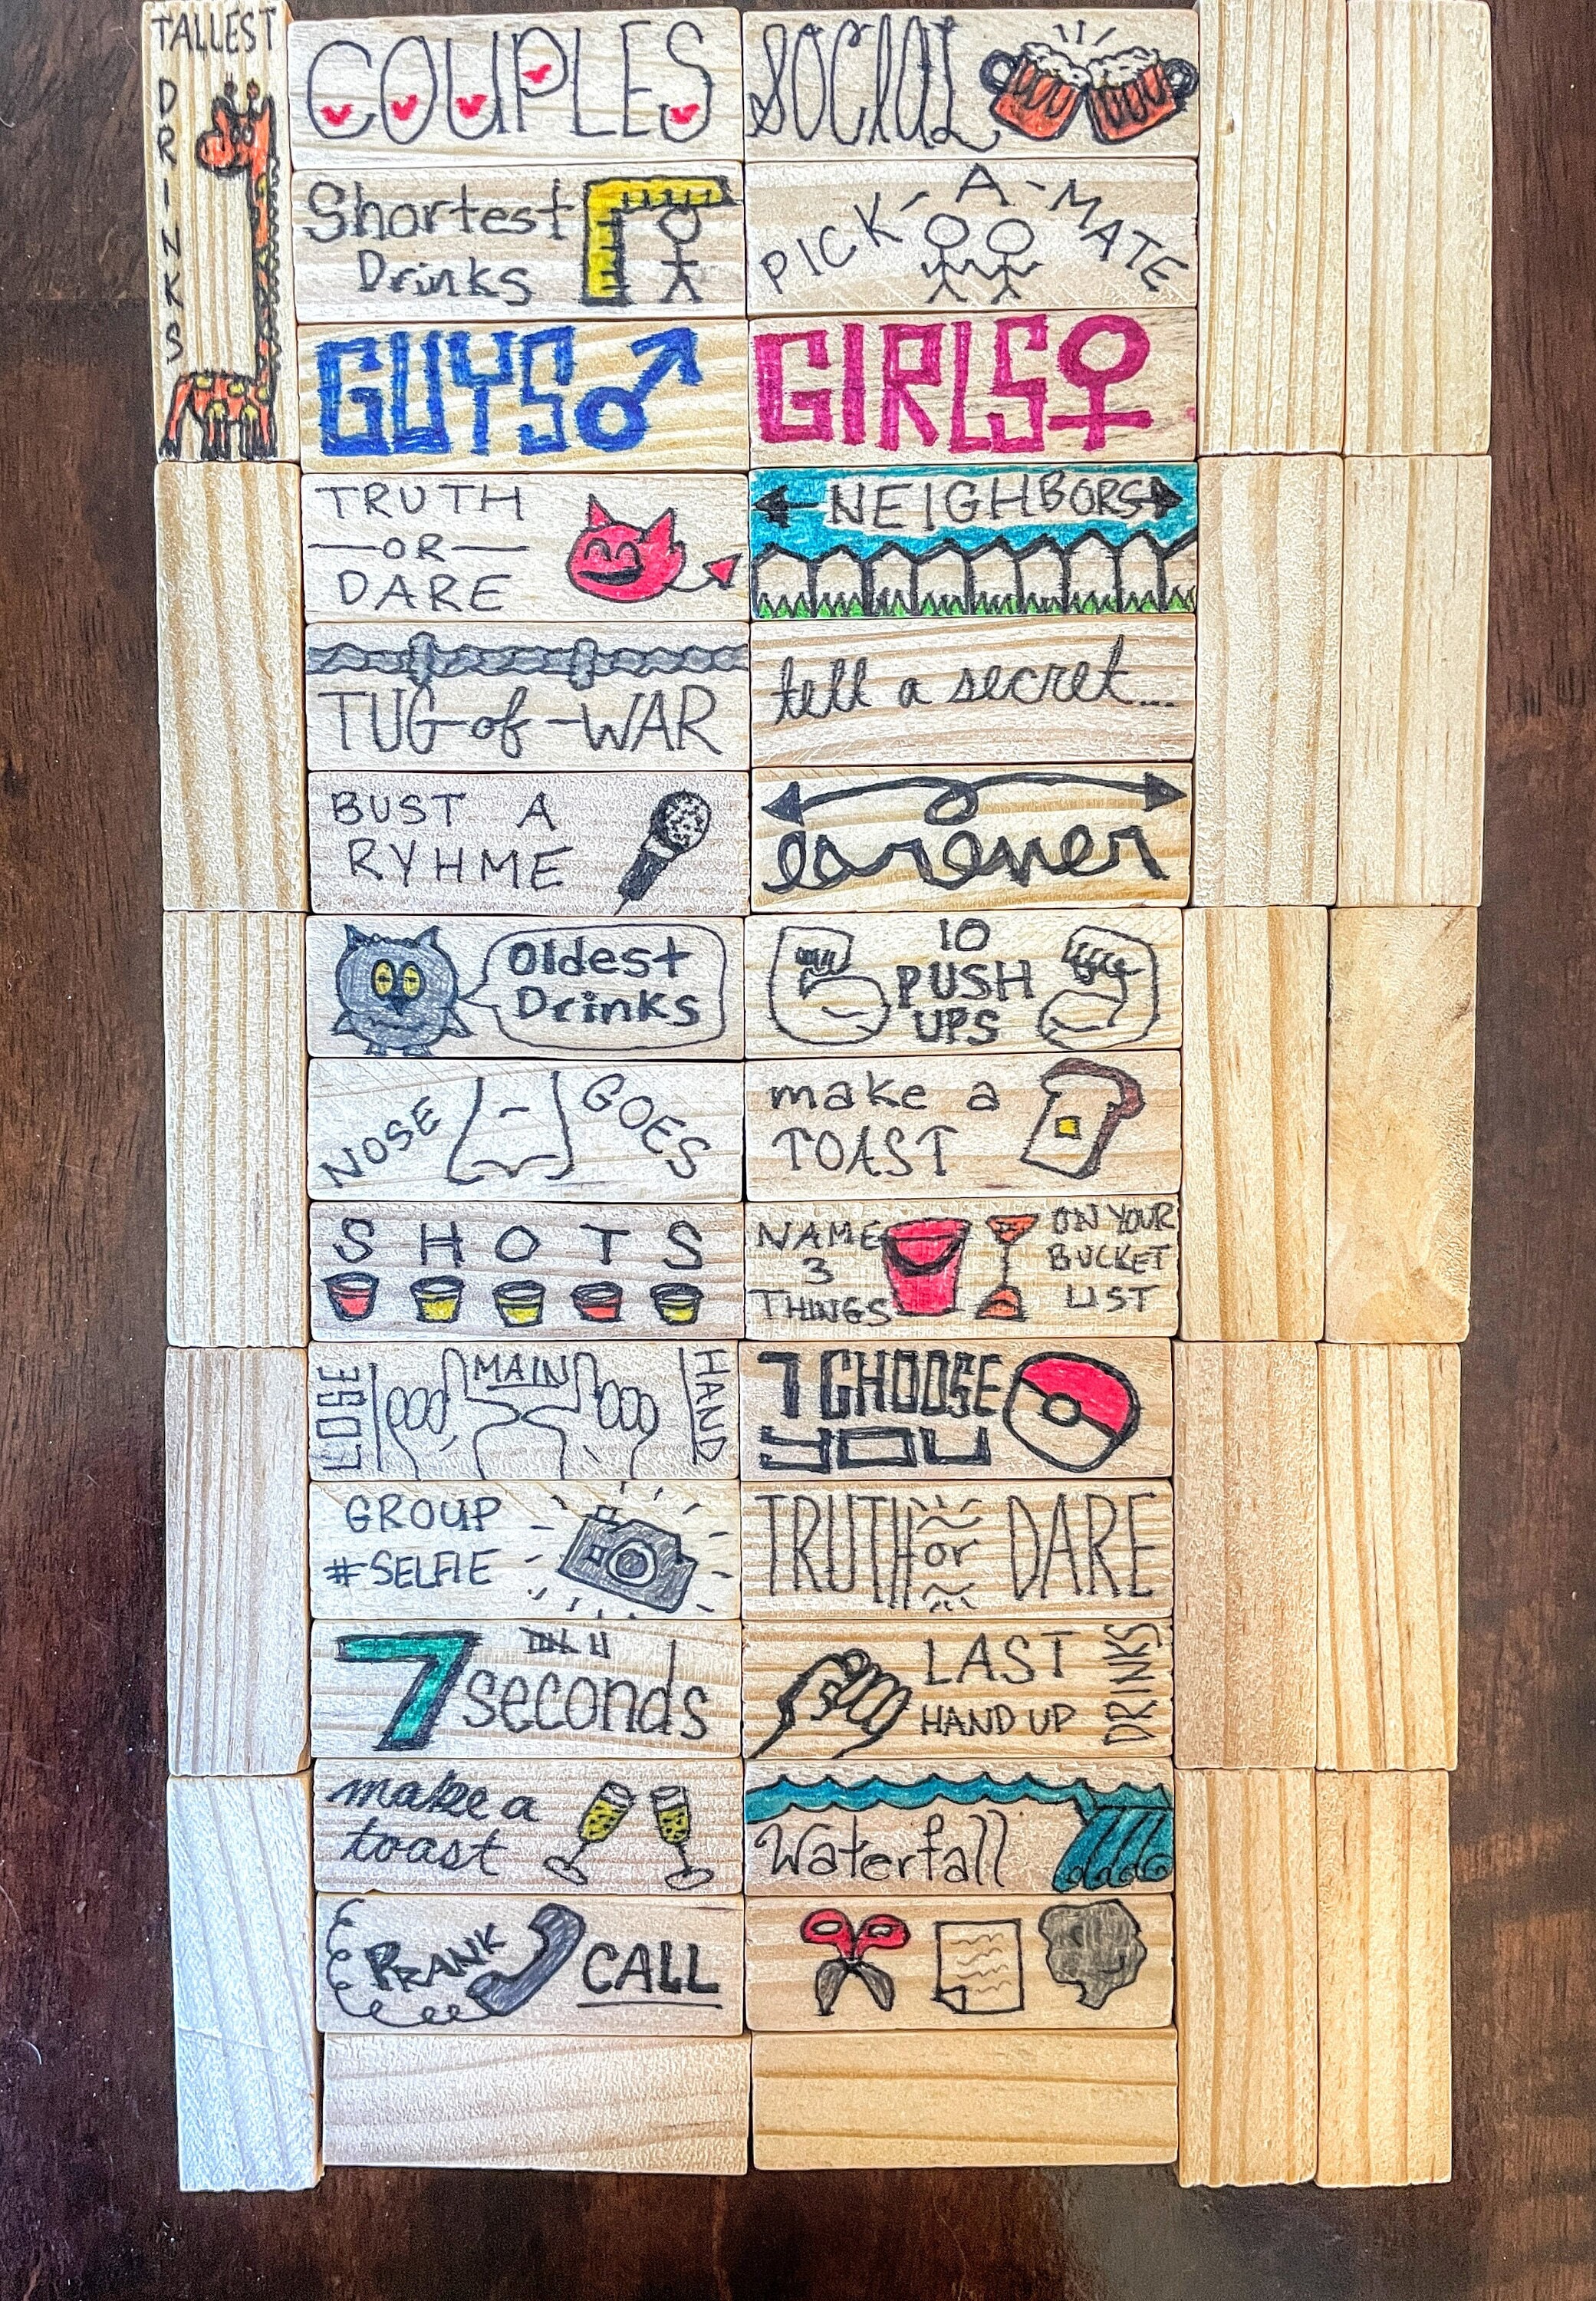 TALLEST
DRINKS
COUPLES
SOCIAL
Shortest
Drinks
PICK-A-MATE
GUYS♂
GIRLS♀
TRUTH
OR
DARE
NEIGHBORS
TUG-of-WAR
tell a secret...
BUST A
RYHME
Oldest
Drinks
10
PUSH
UPS
NOSE GOES
make a
TOAST
SHOTS
NAME
3
THINGS
ON YOUR
BUCKET
LIST
LOSE MAIN HAND
I CHOOSE
YOU
GROUP
#SELFIE
TRUTH or DARE
7 seconds
LAST
HAND UP
DRINKS
make a
toast
Waterfall
PRANK CALL